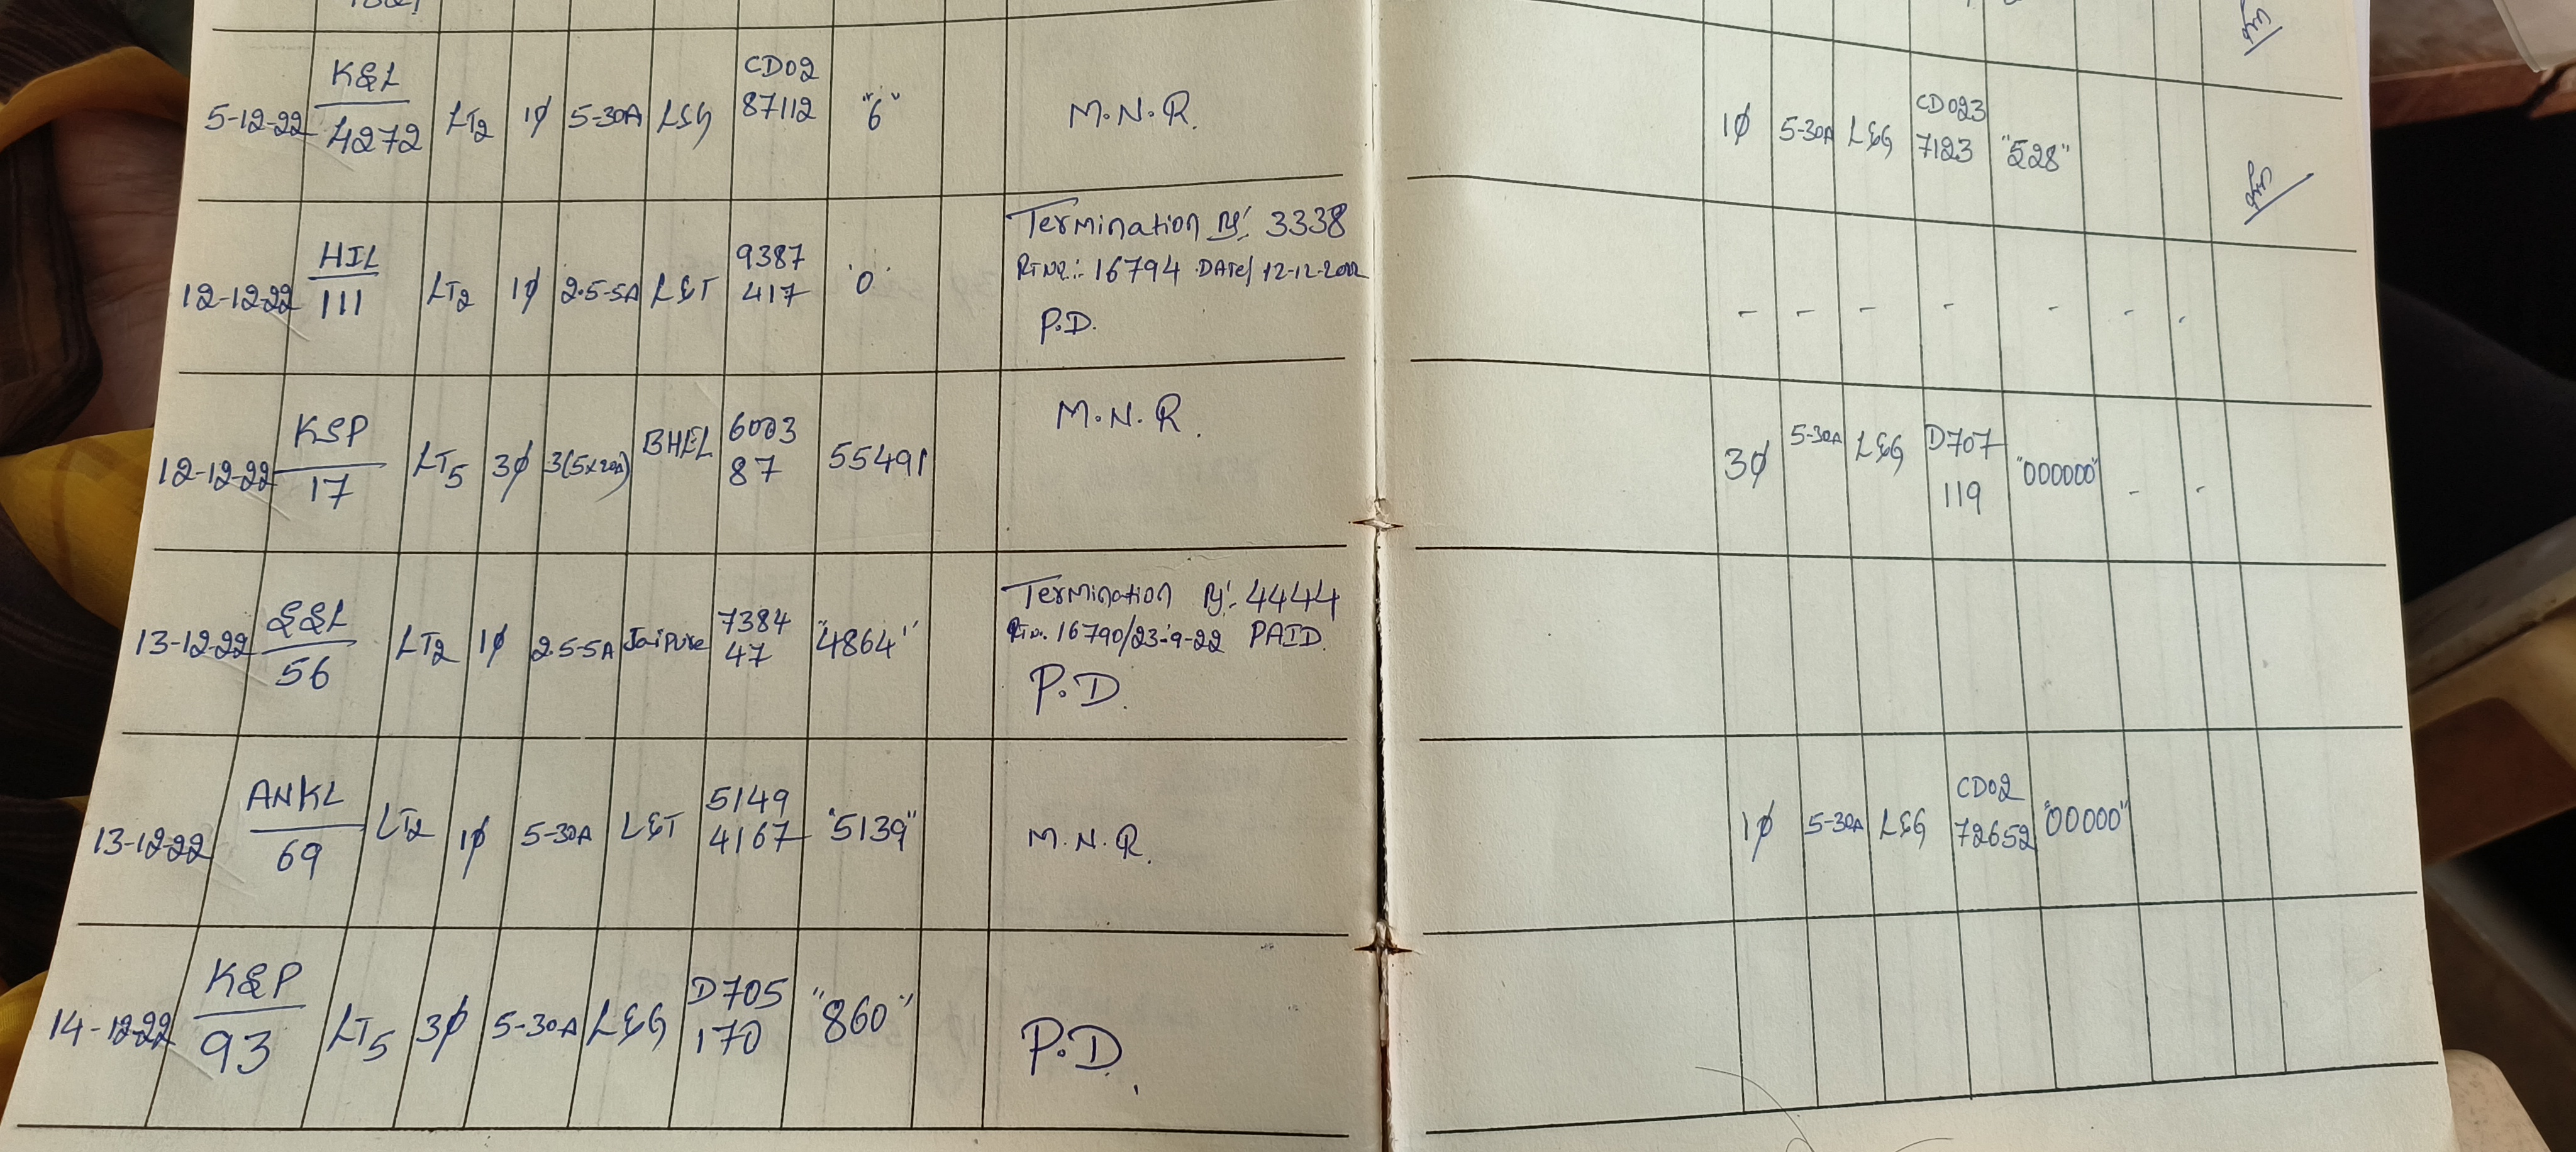 5-12-22 K&L/4272 LT2 1φ 5-30A L&G CD02 87112 "6" M.N.R. 1φ 5-30A L&G CD023 7123 "528"
12-12-22 HIL/111 LT2 1φ 2.5-5A L&T 9387 417 '0' Termination By:- 3338
16794 DATE/12-12-2022
P.D. - - - - - - -
12-12-22 KSP/17 LT5 3φ 3(5x20A) BHEL 6003 87 55491 M.N.R. 3φ 5-30A L&G D707 119 "000000" - -
13-12-22 SSL/56 LT2 1φ 2.5-5A Jaipure 7384 47 "4864" Termination By:- 4444
16790/23-9-22 PAID.
P.D.
13-12-22 ANKL/69 LT2 1φ 5-30A L&T 5149 4167 "5139" M.N.R. 1φ 5-30A L&G CD02 72652 "00000"
14-12-22 K&P/93 LT5 3φ 5-30A L&G D705 170 "860" P.D.